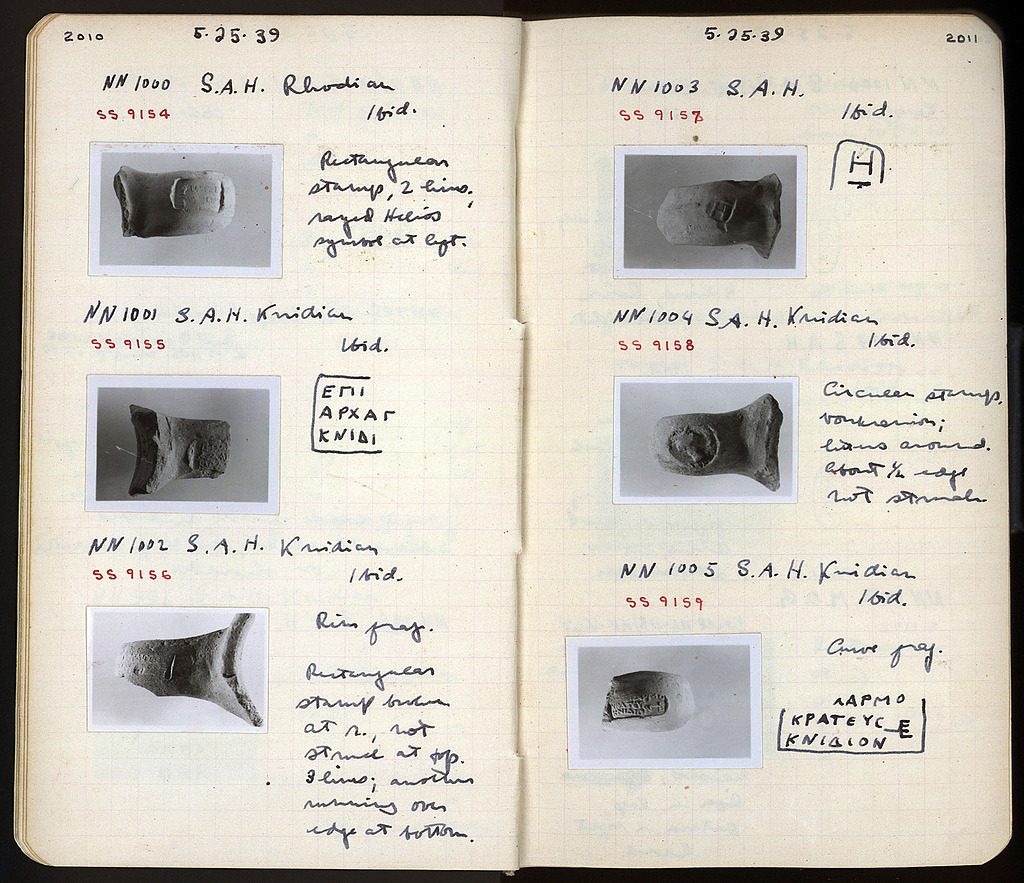 2010
5.25.39
NN 1000 S.A.H. Rhodian
SS 9154
Ibid.
Rectangular
stamp, 2 lines,
rayed Helios
symbol at left.
NN 1001 S.A.H. Knidian
SS 9155
Ibid.
ΕΠΙ
ΑΡΧΑΓ
ΚΝΙΔΙ
NN 1002 S.A.H. Knidian
SS 9156
Ibid.
Rim frag.
Rectangular
stamp broken
at r., not
struck at top.
3 lines; another
running over
edge at bottom.
5.25.39
2011
NN 1003 S.A.H.
SS 9157
Ibid.
Η
NN 1004 S.A.H. Knidian
SS 9158
Ibid.
Circular stamp,
boukranion;
letters around.
About 1/2 edge
not struck
NN 1005 S.A.H. Knidian
SS 9159
Ibid.
Curve frag.
ΛΑΡΜΟ
ΚΡΑΤΕΥC Ε
ΚΝΙΔΙΟΝ